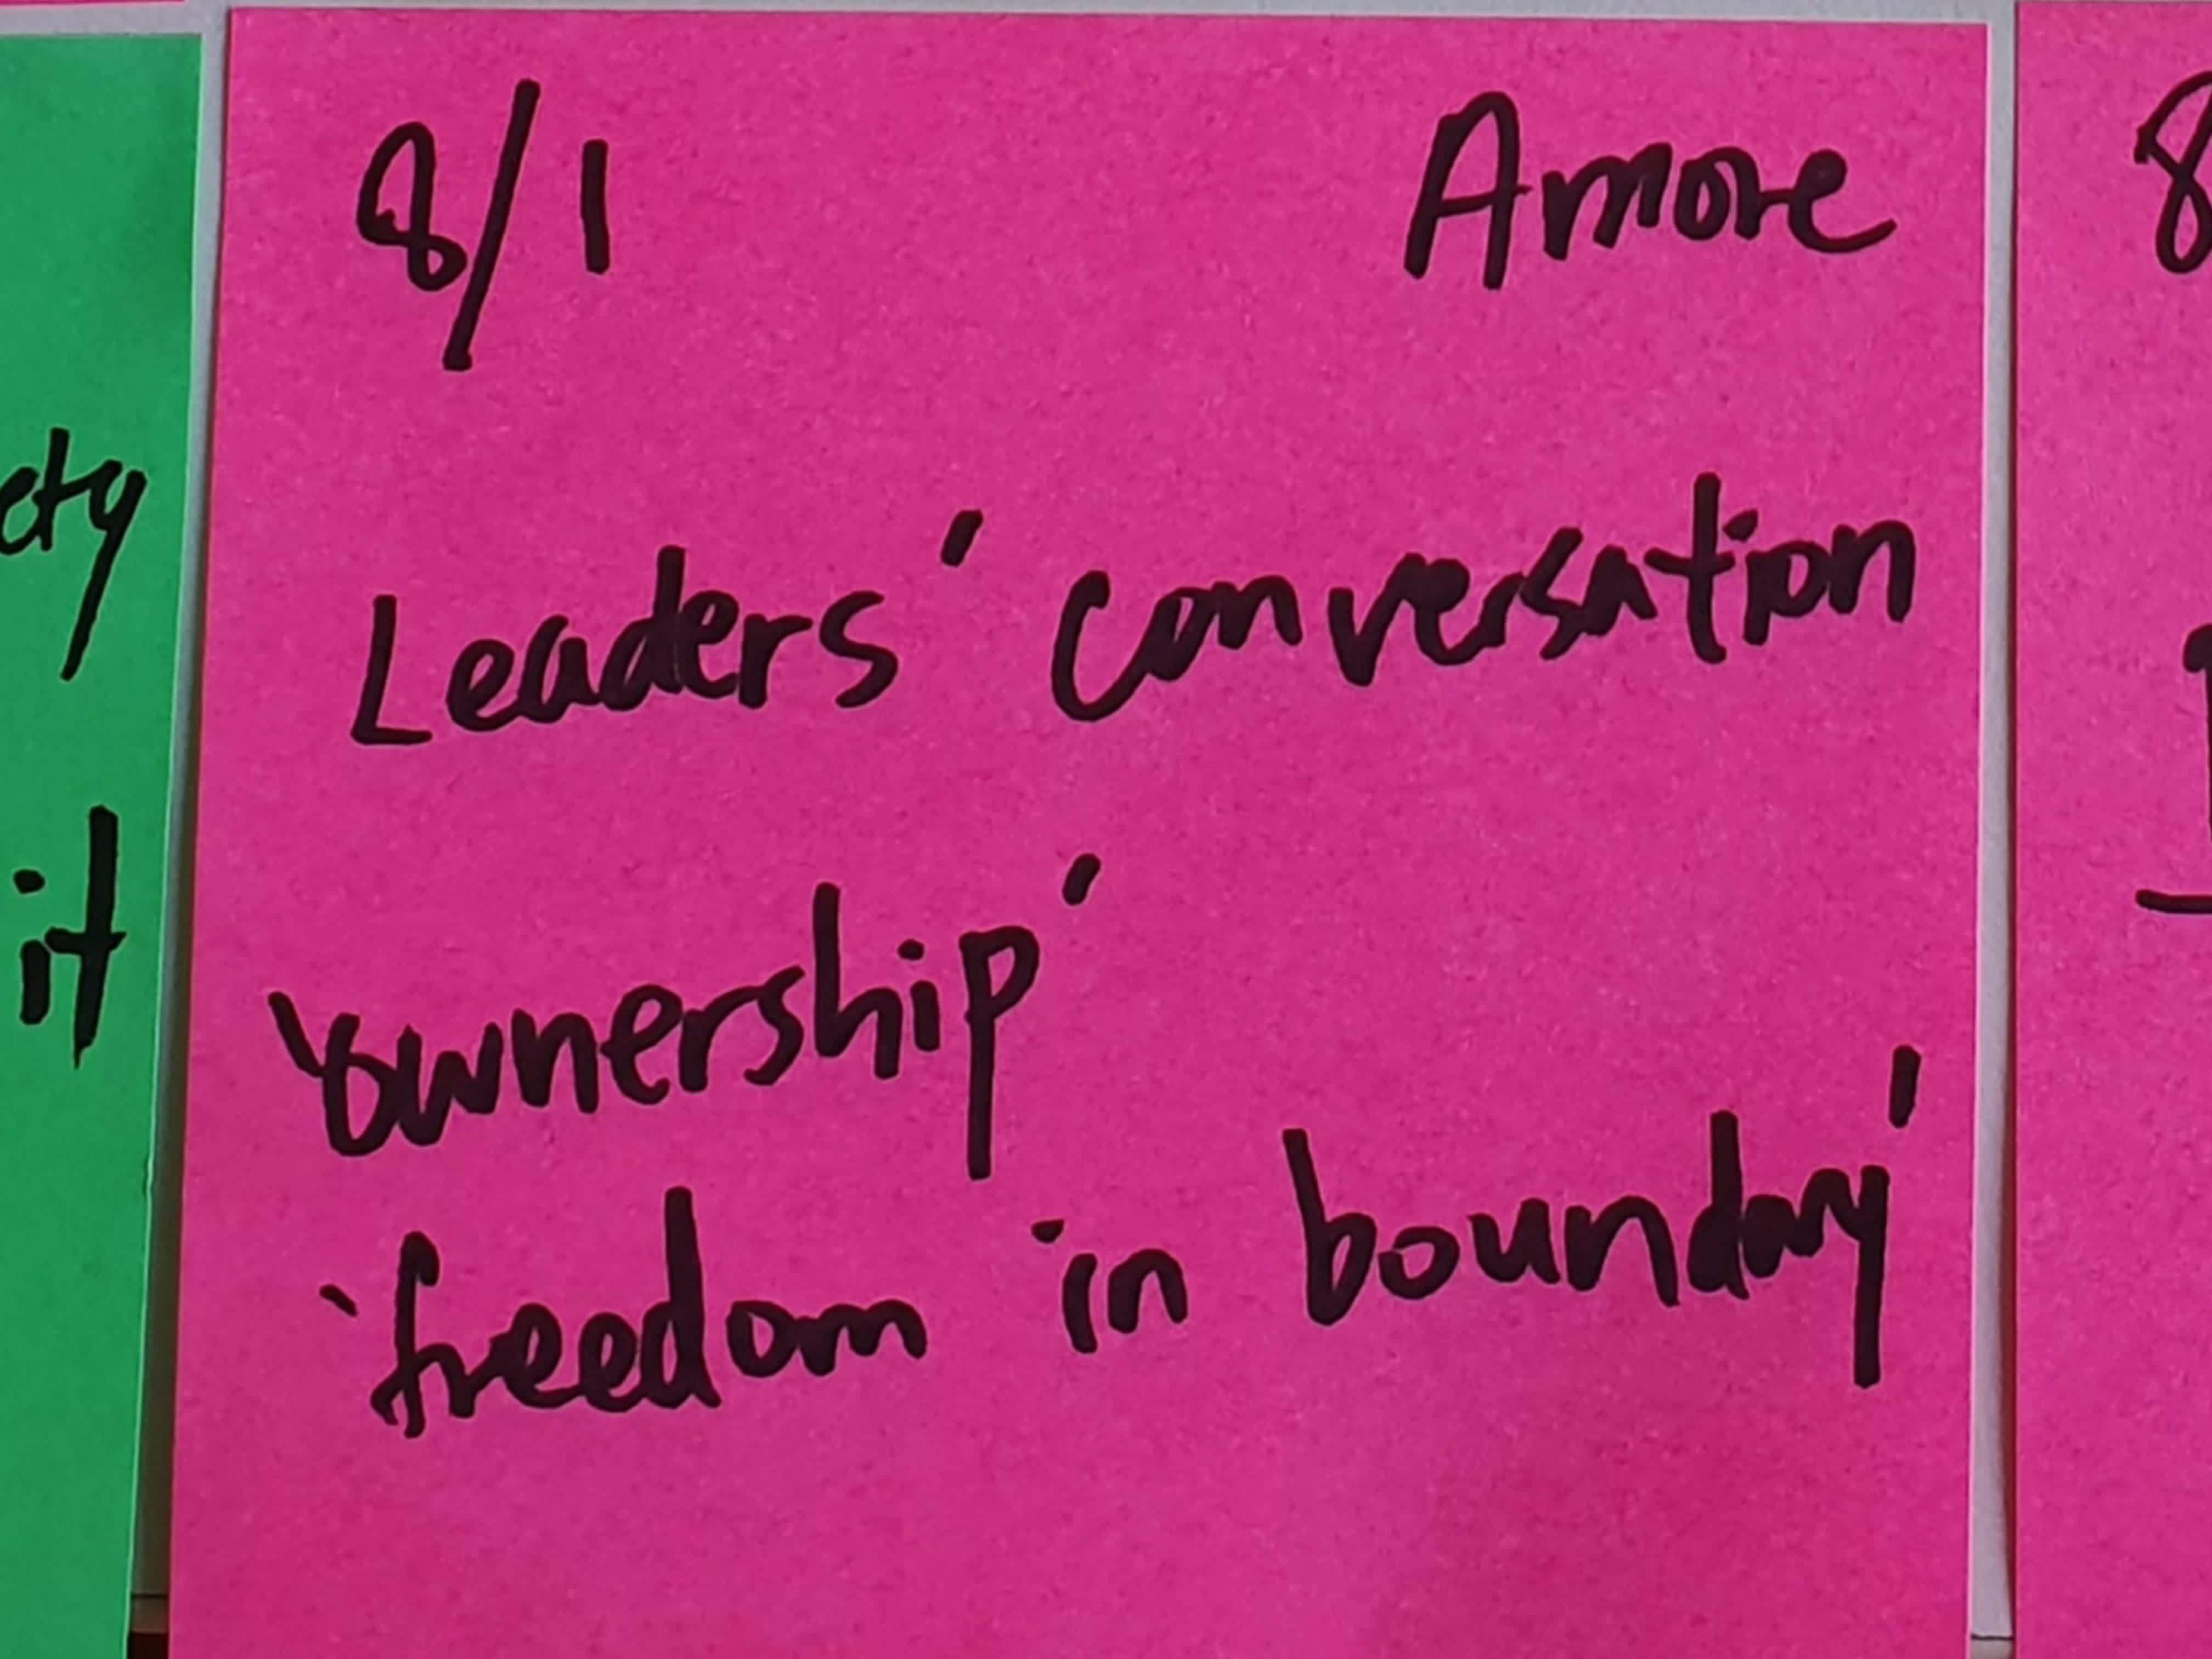 8/1 Amore
Leaders' conversation
'ownership'
'freedom in boundary'
it
8